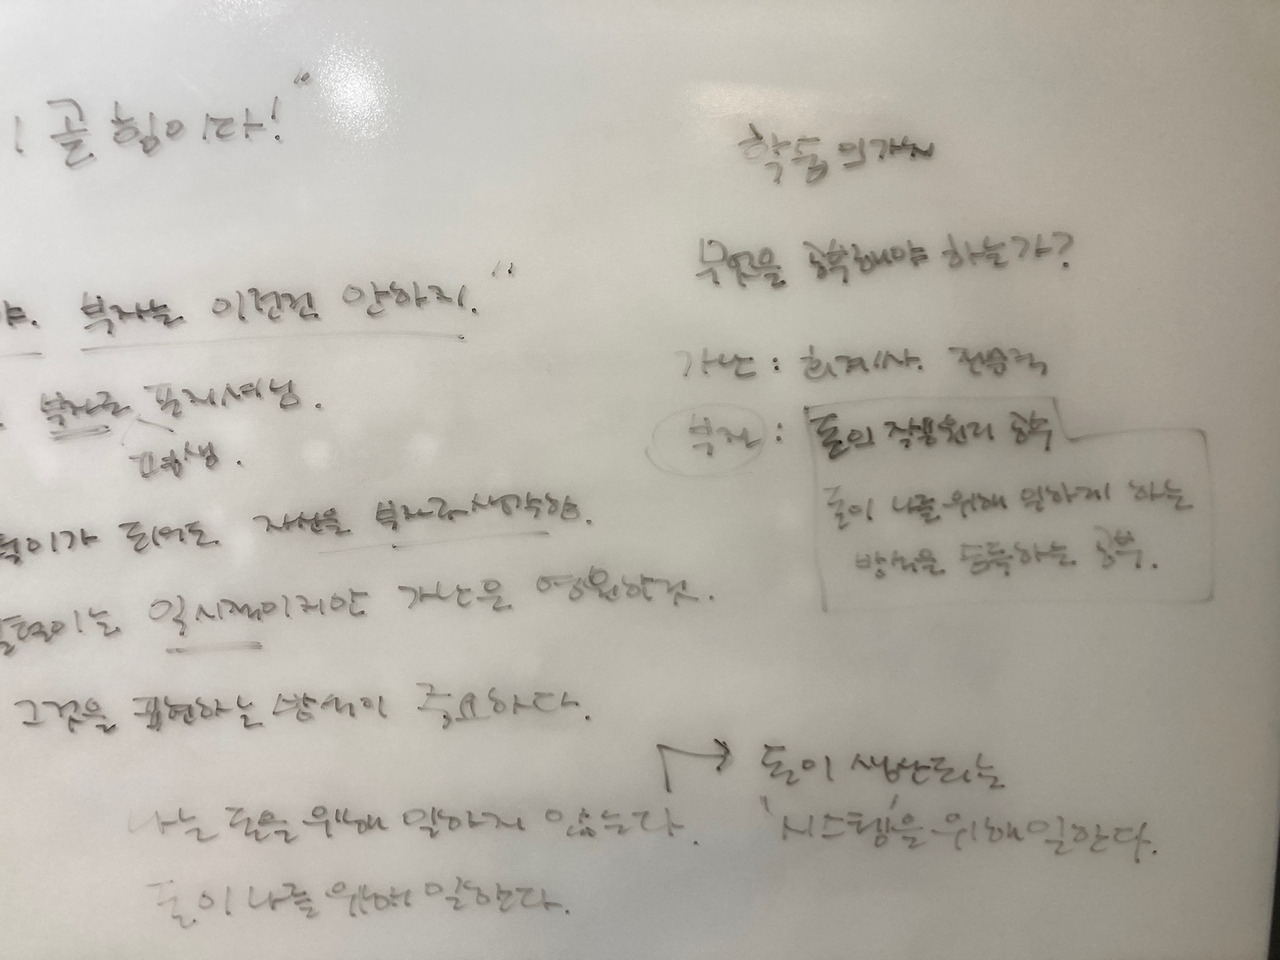 골 힘이다!"
야. 부자는 이런건 안하지."
부자로 포지셔닝.
고학생.
이가 되어도 자신을 부자로 생각함.
이는 일시적이지만 가난은 영원한것.
그것을 표현하는 방식이 중요하다.
나는 돈을 위해 일하지 않는다.
돈이 나를 위해 일한다.
학습의 가치
무엇을 공부해야 하는가?
가난: 회계사.
부자: 돈의 작용원리 공부
돈이 나를 위해 일하게 하는
방식을 습득하는 공부.
돈이 생산되는
'시스템'을 위해 일한다.